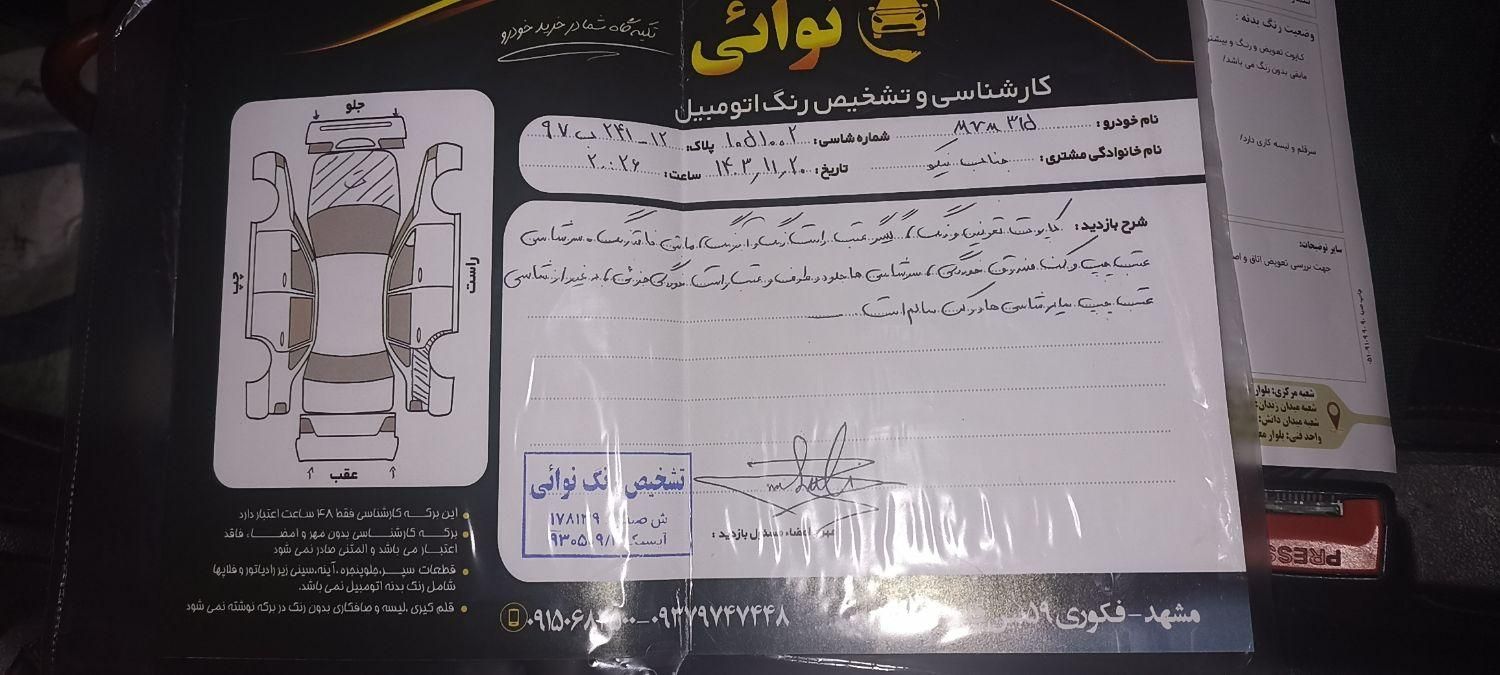 تکیه گاه شما در خرید خودرو
نوائی
کارشناسی و تشخیص رنگ اتومبیل
نام خودرو : MVM 315 شماره شاسی: ۱۰۵۱۰۰۲ پلاک: ۱۲-۲۴۱ ب ۹۷
نام خانوادگی مشتری : جناب نیکو تاریخ: ۱۴۰۳,۱۱,۲۰ ساعت: ۲۰:۲۶
جلو
چپ
راست
عقب
شرح بازدید : کاپوت تعویض و رنگ / گلگیر عقب راست رنگ / مابقی فاقد رنگ ، سرشاسی
عقب چپ و کف صندوق خوردگی / سرشاسی ها جلو دو طرف و عقب راست خوردگی جزئی / به غیر از شاسی
عقب چپ سایر شاسی ها و رکن سالم است
تشخیص رنگ نوائی
ش صنفی: ۱۷۸۱۲۹
مهر و امضاء مسئول بازدید :
این برگه کارشناسی فقط ۴۸ ساعت اعتبار دارد
برگه کارشناسی بدون مهر و امضاء فاقد
اعتبار می باشد و المثنی صادر نمی شود
قطعات سپر،جلوپنجره ،آینه،سینی زیر رادیاتور و فلاپها
شامل رنگ بدنه اتومبیل نمی باشد.
قلم گیری ،لیسه و صافکاری بدون رنگ در برگه نوشته نمی شود
مشهد-فکوری ۵۹
۰۹۳۷۹۷۴۷۴۴۸-
وضعیت رنگ بدنه :
کاپوت تعویض و رنگ و بیشتر
مابقی بدون رنگ می باشد/
سرقلم و لیسه کاری دارد/
سایر توضیحات:
جهت بررسی تعویض اتاق و اص
شعبه مرکزی: بلوار
شعبه میدان زندان:
شعبه میدان دانش:
واحد فنی: بلوار مع
PRESS